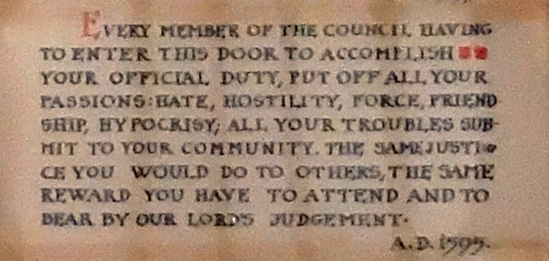 EVERY MEMBER OF THE COUNCIL HAVING
TO ENTER THIS DOOR TO ACCOMPLISH
YOUR OFFICIAL DUTY, PUT OFF ALL YOUR
PASSIONS: HATE, HOSTILITY, FORCE, FRIEND
SHIP, HYPOCRISY; ALL YOUR TROUBLES SUB-
MIT TO YOUR COMMUNITY. THE SAME JUSTI-
CE YOU WOULD DO TO OTHERS, THE SAME
REWARD YOU HAVE TO ATTEND AND TO
BEAR BY OUR LORDS JUDGEMENT.
A.D. 1595.